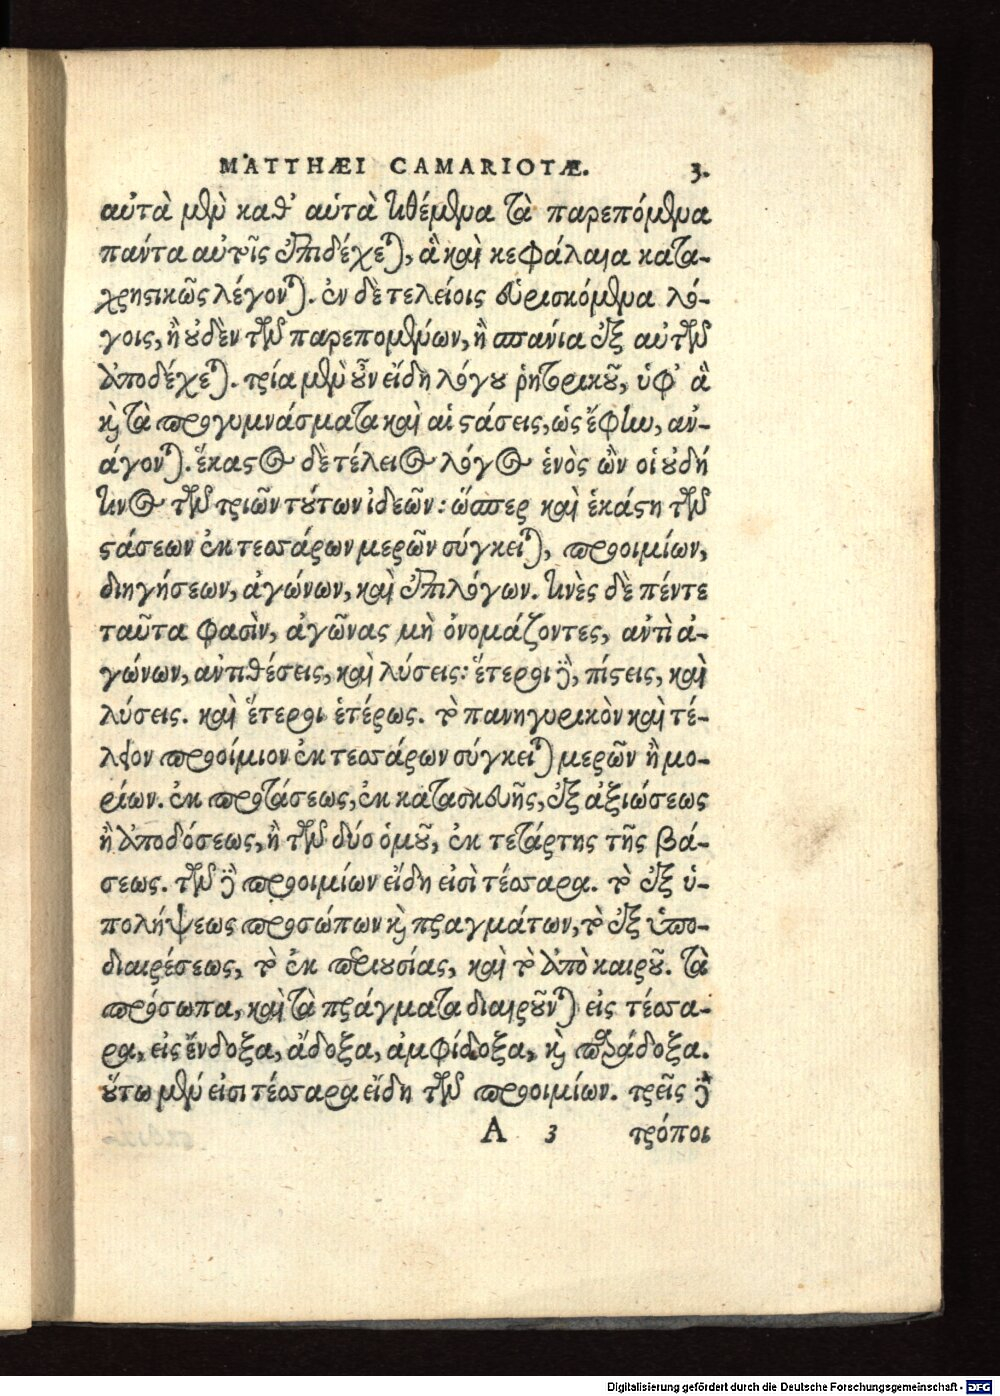 MATTHÆI CAMARIOTÆ. 3.
αὐτὰ μὲν καθ' αὑτὰ τιθέμενα τὰ παρεπόμενα
πάντα αὐτοῖς ἐπιδέχεται, ἃ καὶ κεφάλαια κατα-
χρηστικῶς λέγονται. ἐν δὲ τελείοις εὑρισκόμενα λό-
γοις, ἢ οὐδὲν τῶν παρεπομένων, ἢ σπανία ἐξ αὐτῶν
ἀποδέχεται. τρία μὲν οὖν εἴδη λόγου ῥητορικοῦ, ὑφ' ἃ
καὶ τὰ προγυμνάσματα καὶ αἱ στάσεις, ὡς ἔφην, ἀν-
άγονται. ἕκαστος δὲ τέλειος λόγος ἑνὸς ὢν οἱουδή
τινος τῶν τριῶν τούτων ἰδεῶν: ὥσπερ καὶ ἑκάστη τῶν
στάσεων ἐκ τεσσάρων μερῶν σύγκειται, προοιμίων,
διηγήσεων, ἀγώνων, καὶ ἐπιλόγων. τινὲς δὲ πέντε
ταῦτα φασὶν, ἀγῶνας μὴ ὀνομάζοντες, ἀντὶ ἀ-
γώνων, ἀντιθέσεις, καὶ λύσεις: ἕτεροι δὲ, πίστεις, καὶ
λύσεις. καὶ ἕτεροι ἑτέρως. τὸ πανηγυρικὸν καὶ τέ-
λειον προοίμιον ἐκ τεσσάρων σύγκειται μερῶν ἢ μο-
ρίων. ἐκ προτάσεως, ἐκ κατασκευῆς, ἐξ ἀξιώσεως
ἢ ἀποδόσεως, ἢ τῶν δύο ὁμοῦ, ἐκ τετάρτης τῆς βά-
σεως. τῶν δὲ προοιμίων εἴδη εἰσὶ τέσσαρα. τὸ ἐξ ὑ-
πολήψεως προσώπων καὶ πραγμάτων, τὸ ἐξ ὑπο-
διαιρέσεως, τὸ ἐκ περιουσίας, καὶ τὸ ἀπὸ καιροῦ. τὰ
πρόσωπα, καὶ τὰ πράγματα διαιροῦνται εἰς τέσσα-
ρα, εἰς ἔνδοξα, ἄδοξα, ἀμφίδοξα, καὶ παράδοξα.
οὕτω μέν εἰσι τέσσαρα εἴδη τῶν προοιμίων. τρεῖς δὲ
A 3 τρόποι
Digitalisierung gefördert durch die Deutsche Forschungsgemeinschaft - DFG